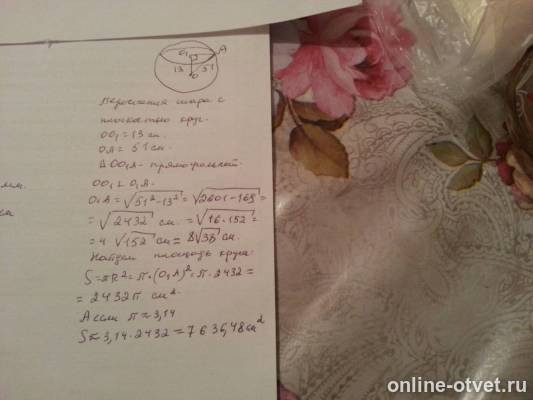 O₁ A
13 51
O
Пересечения шара с
плоскостью круг.
OO₁ = 13 см.
OA = 51 см.
Δ OO₁A - прямоугольный.
OO₁ ⊥ O₁A.
O₁A = √51² - 13² = √2601 - 169 =
= √2432 см. = √16 · 152 =
= 4 √152 см = 8√38 см.
Найдем площадь круга:
S = πR² = π · (O₁A)² = π · 2432 =
= 2432π см².
А если π ≈ 3,14
S ≈ 3,14 · 2432 = 7636,48 см²
online-otvet.ru